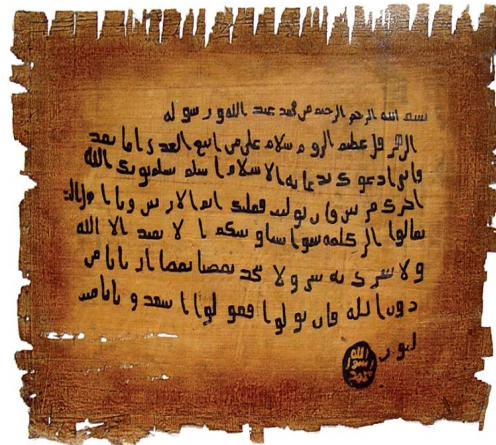 بسم الله الرحمن الرحيم من محمد عبد الله ورسوله
الى هرقل عظيم الروم سلام على من اتبع الهدى اما بعد
فانى ادعوك بدعاية الاسلام اسلم تسلم يوتك الله
اجرك مرتين فان توليت فعليك اثم الاريسين ويا اهل
تعالوا الى كلمة سوا بيننا وبينكم ا لا نعبد الا الله
ولا نشرك به ولا يتخذ بعضنا بعضا اربابا من
دون الله فان تولوا فقولوا اشهدوا بانا مسـ
لمون
الله
رسول
محمد